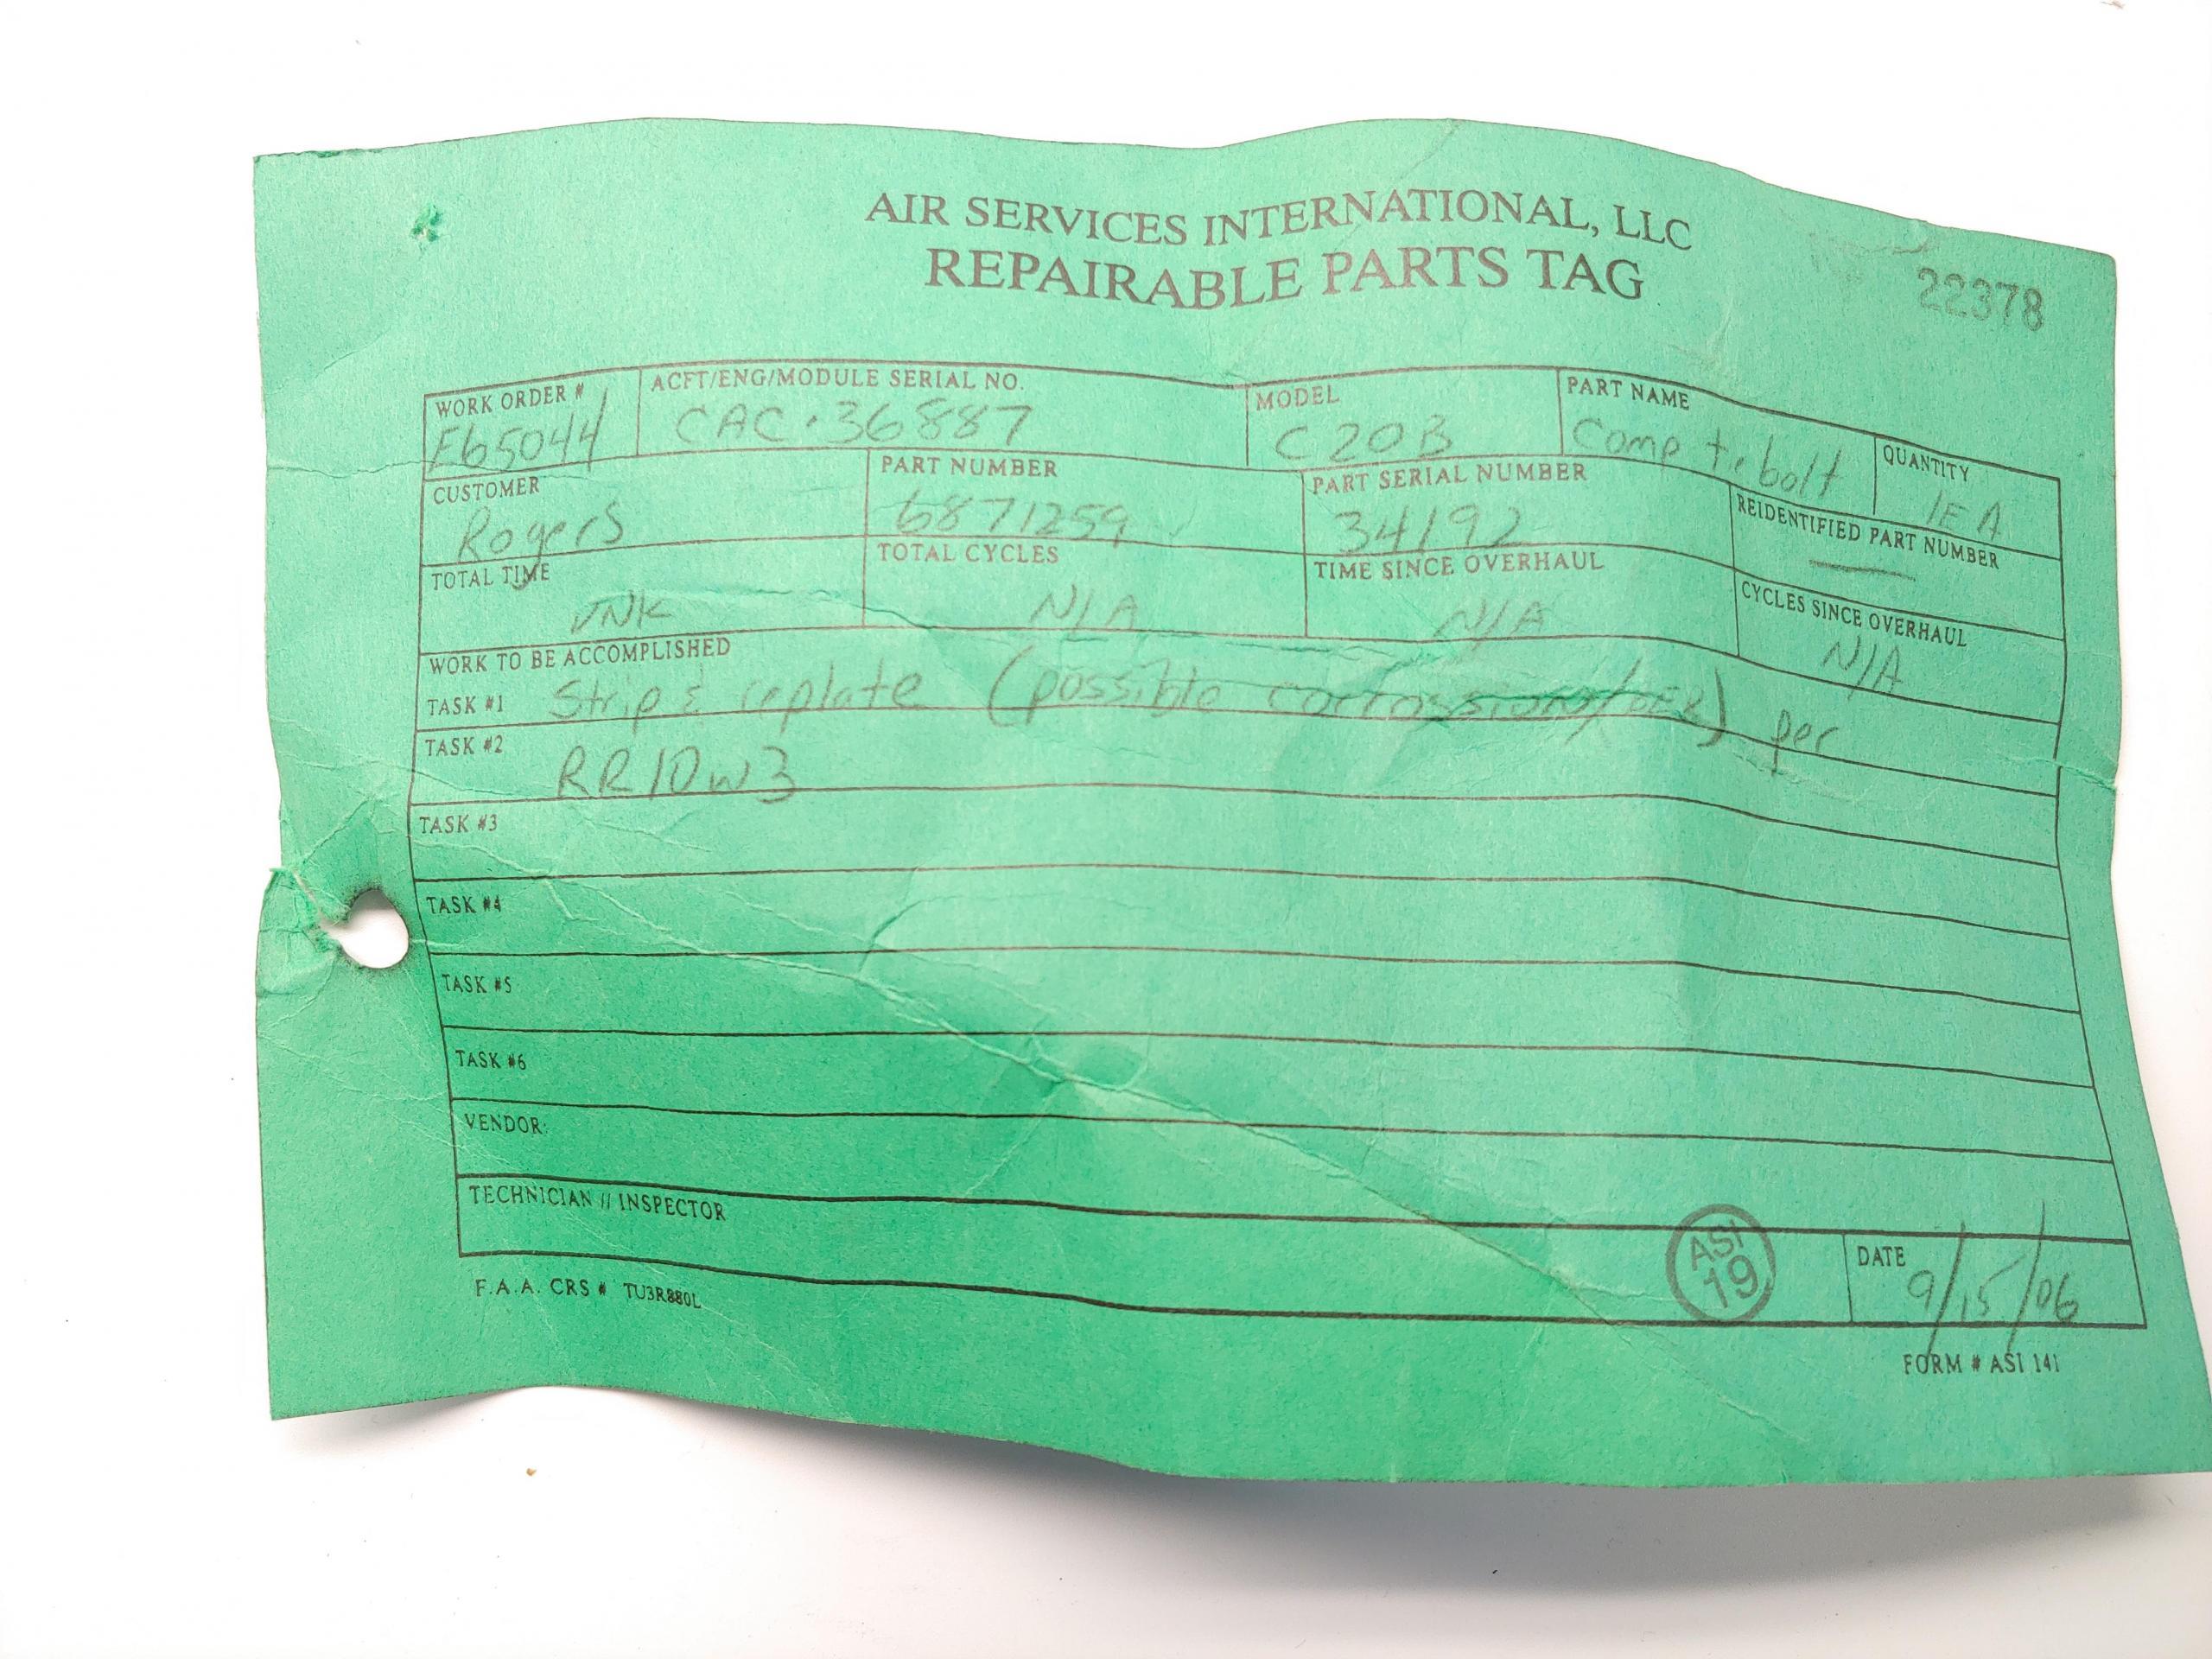 AIR SERVICES INTERNATIONAL, LLC
REPAIRABLE PARTS TAG
22378
WORK ORDER # E65044
ACFT/ENG/MODULE SERIAL NO. CAC-36887
MODEL C20B
PART NAME Comp tie bolt
QUANTITY 1EA
CUSTOMER Rogers
PART NUMBER 6871259
PART SERIAL NUMBER 34192
REIDENTIFIED PART NUMBER —
TOTAL TIME UNK
TOTAL CYCLES N/A
TIME SINCE OVERHAUL N/A
CYCLES SINCE OVERHAUL N/A
WORK TO BE ACCOMPLISHED
TASK #1 Strip & replate (possible corrossion/BER) per
TASK #2 RR10W3
TASK #3
TASK #4
TASK #5
TASK #6
VENDOR:
TECHNICIAN // INSPECTOR
ASI 19
DATE 9/15/06
F.A.A. CRS # TU3R880L
FORM # ASI 141